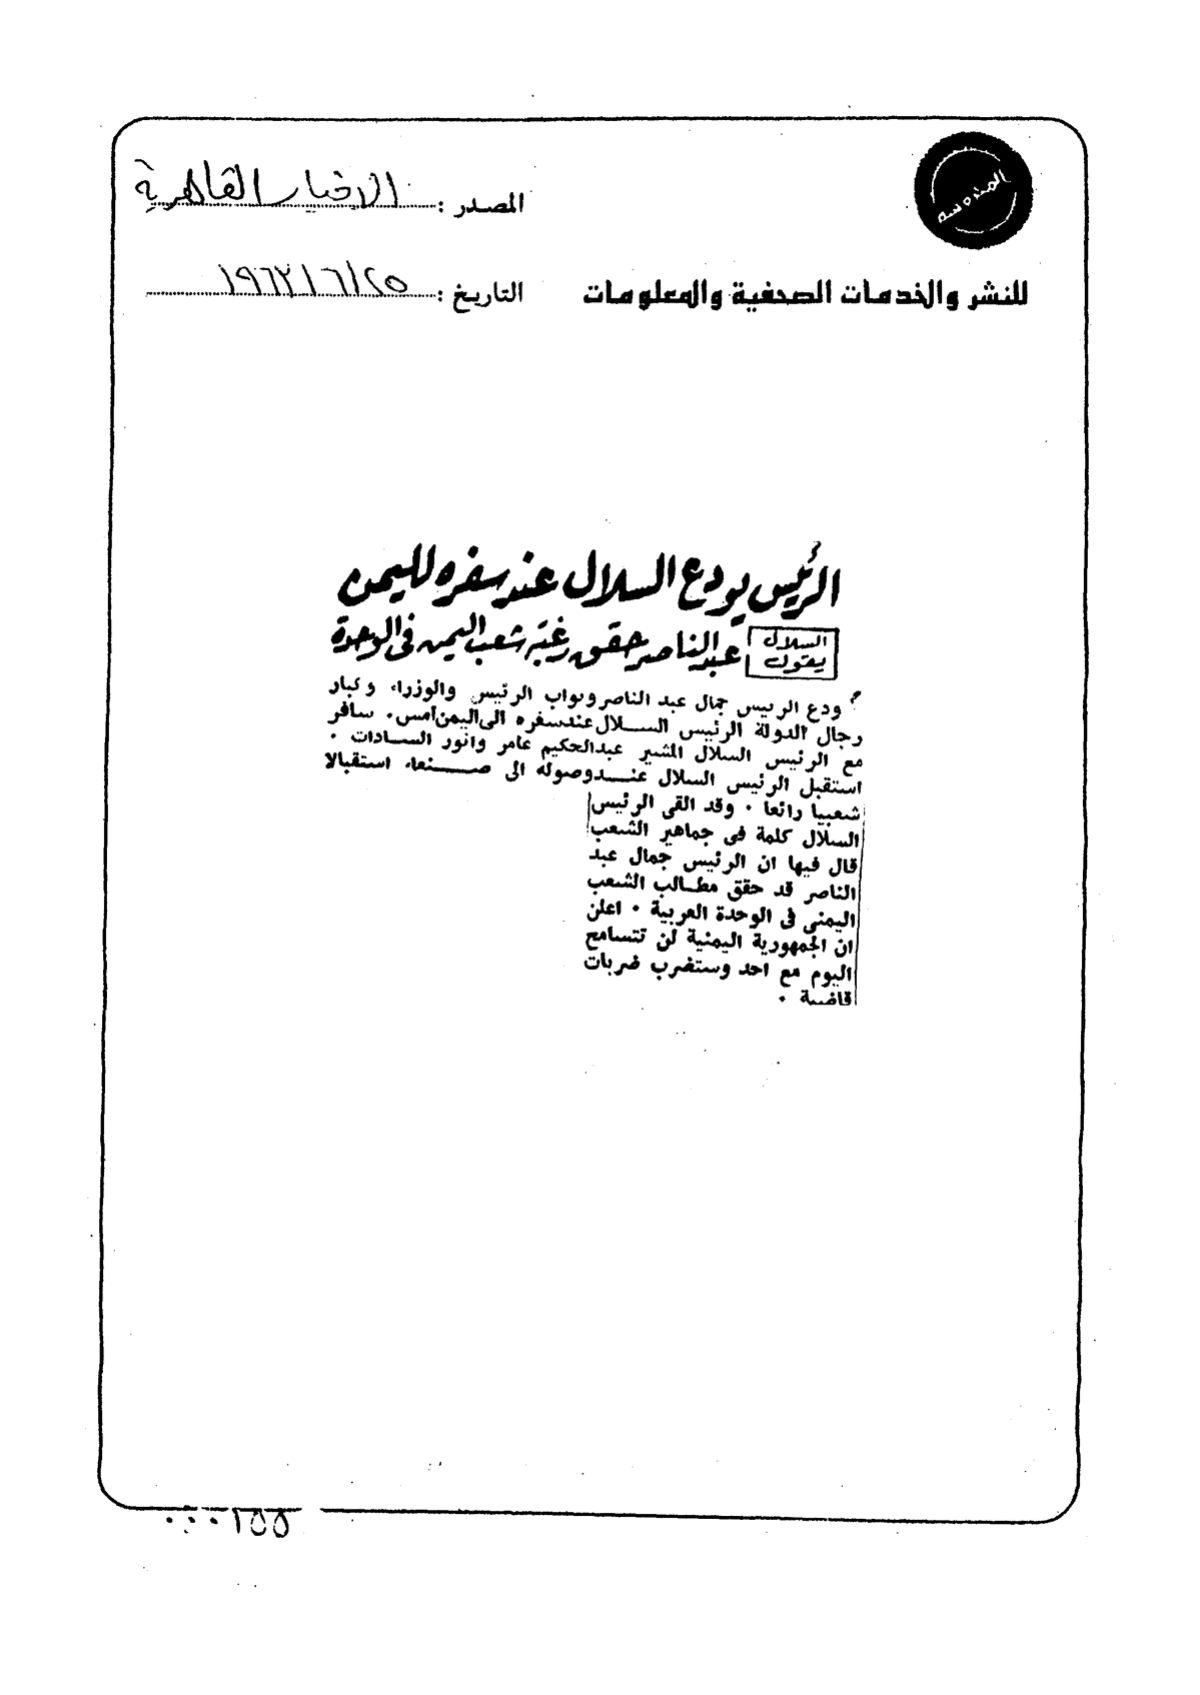 المصدر : الاخبار القاهرية
للنشر والخدمات الصحفية والمعلومات
التاريخ : ٢٥/٦/١٩٦٣
الرئيس يودع السلال عند سفره لليمن
السلال يقول
عبد الناصر حقق رغبة شعب اليمن فى الوحدة
ودع الرئيس جمال عبد الناصر ونواب الرئيس والوزراء وكبار
رجال الدولة الرئيس السلال عند سفره الى اليمن أمس . سافر
مع الرئيس السلال المشير عبد الحكيم عامر وانور السادات .
استقبل الرئيس السلال عند وصوله الى صنعاء استقبالا
شعبيا رائعا . وقد القى الرئيس
السلال كلمة فى جماهير الشعب
قال فيها ان الرئيس جمال عبد
الناصر قد حقق مطالب الشعب
اليمنى فى الوحدة العربية . اعلن
ان الجمهورية اليمنية لن تتسامح
اليوم مع احد وستضرب ضربات
قاضية .
٠٠٠١٥٥